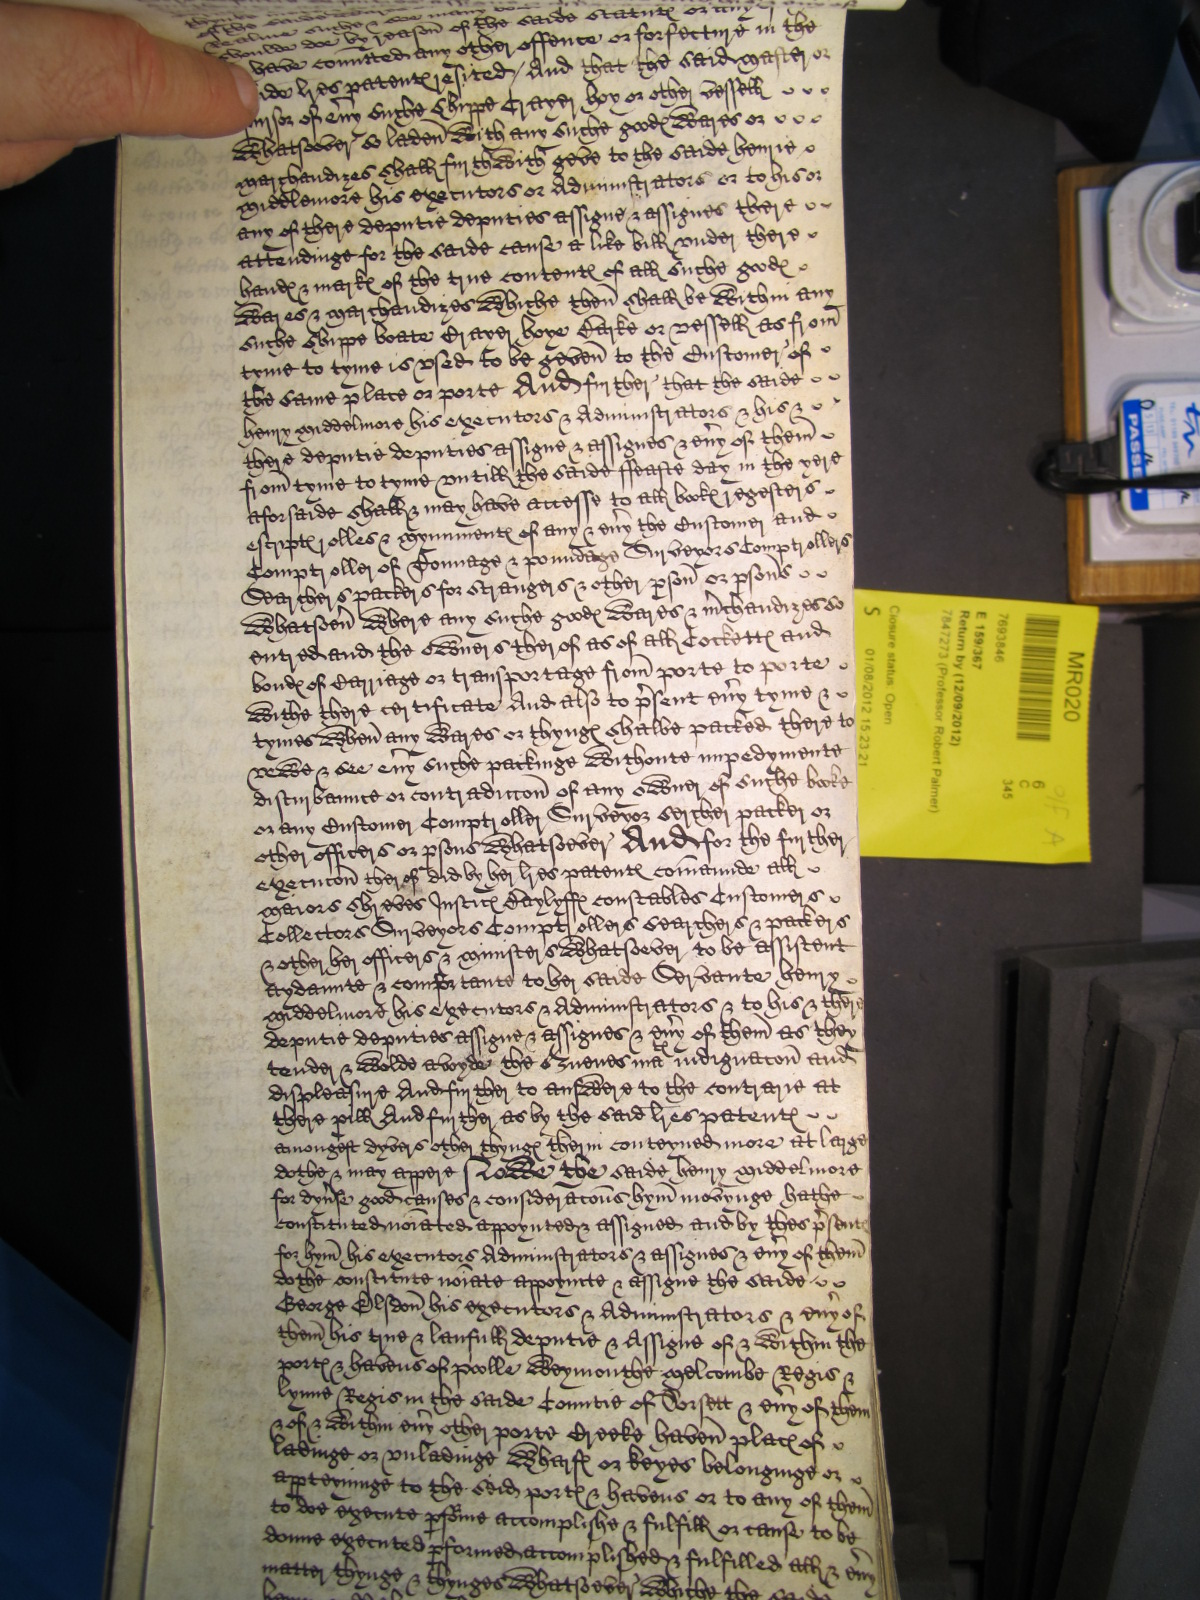 of the saide
Realme suche & soe many
shoulde doe by reason of the saide Statute or any
have comitted any other offence or forfecture in the
saide lres patentes resited / And that the said master or
of eny suche Shippe Crayer hoy or other vessell
Whatsoever so laden With any suche goodes Wares or
marchandizes shall furthWith geve to the saide henrie
middlemore his executors or Administrators or to his or
any of there deputie deputies assigne & assignes there
attendinge for the saide cause a like bill under there
handes & markes of the true contentes of all suche goodes
Wares & marchandizes Whiche then shall be Within any
suche Shippe boate Crayer hoye Barke or vessell as from
tyme to tyme is used to be geven to the Customer of
the same place or porte And further that the saide
henry middelmore his executors & Administrators & his &
there deputie deputies assigne & assignes & eny of them
from tyme to tyme untill the saide ffeaste day in the yere
aforsaide shall & may have accesse to all bookes regesters
escriptes rolles & mynimentes of any & eny the Customer and
Comptroller of Tonnage & poundage Surveyors Comptrollers
Searchers packers for strangers & other pson or psons
Whatsoeu Where any suche goodes Wares & mchandizes so
entred and the oWners therof as of all Cockettes and
bondes of Carriage or transportage from porte to porte
Withe there certificate And also to psent eny tyme &
tymes When any Wares or thynges shalbe packed there to
veWe & see eny suche packinge Withoute impedymente
disturbaunce or contradiccon of any oWner of suche booke
or any Customer Comptroller Surveyor Sercher packer or
other officers or psons Whatsoever And for the further
execucon therof did by her lres patentes comaunde all
maiors Shreves Justices Baylyffes constables Customers
Collectors Surveyors Comptrollers Searchers & packers
& other her officers & ministers Whatsoever to be assistent
aydaunte & comfortante to her saide Servante henry
middelmore his executors & Administrators & to his & there
deputie deputies assigne & assignes & eny of them as they
tender & Wolde avoyde the Quenes mates indignacon and
displeasure And further to ansWere to the contrarie at
there pill And further as by the said lres patentes
amongest dyvers other thynges therin conteyned more at large
dothe & may appere NoWe the saide henry middelmore
for dyvse good causes & consideracons hym movynge hathe
constituted noiated appoynted & assigned and by thes psentes
for hym his executors Administrators & assignes & eny of them
dothe constitute noiate appoynte & assigne the saide
George Elsdon his executors & Administrators & eny of
them his true & laufull deputie & Assigne of & Within the
portes & havens of poolle Weymouthe melcombe Regis &
lynne Regis in the saide Countie of Dorsett & eny of them
& of & Within eny other porte Creeke haven places of
ladinge or unladinge Wharfes or keyes belonginge or
appteyninge to the seid portes & havens or to any of them
to doe execute pforme accomplishe & fulfill or cause to be
donne executed pformed accomplished & fulfilled all & eny
matter thynge & thynges Whatsoever Whiche the saide
MR020
7693846
E 159/367
Return by (12/09/2012)
7847273 (Professor Robert Palmer)
Closure status: Open
S 01/08/2012 15:23:21
6
C
345
PASSED